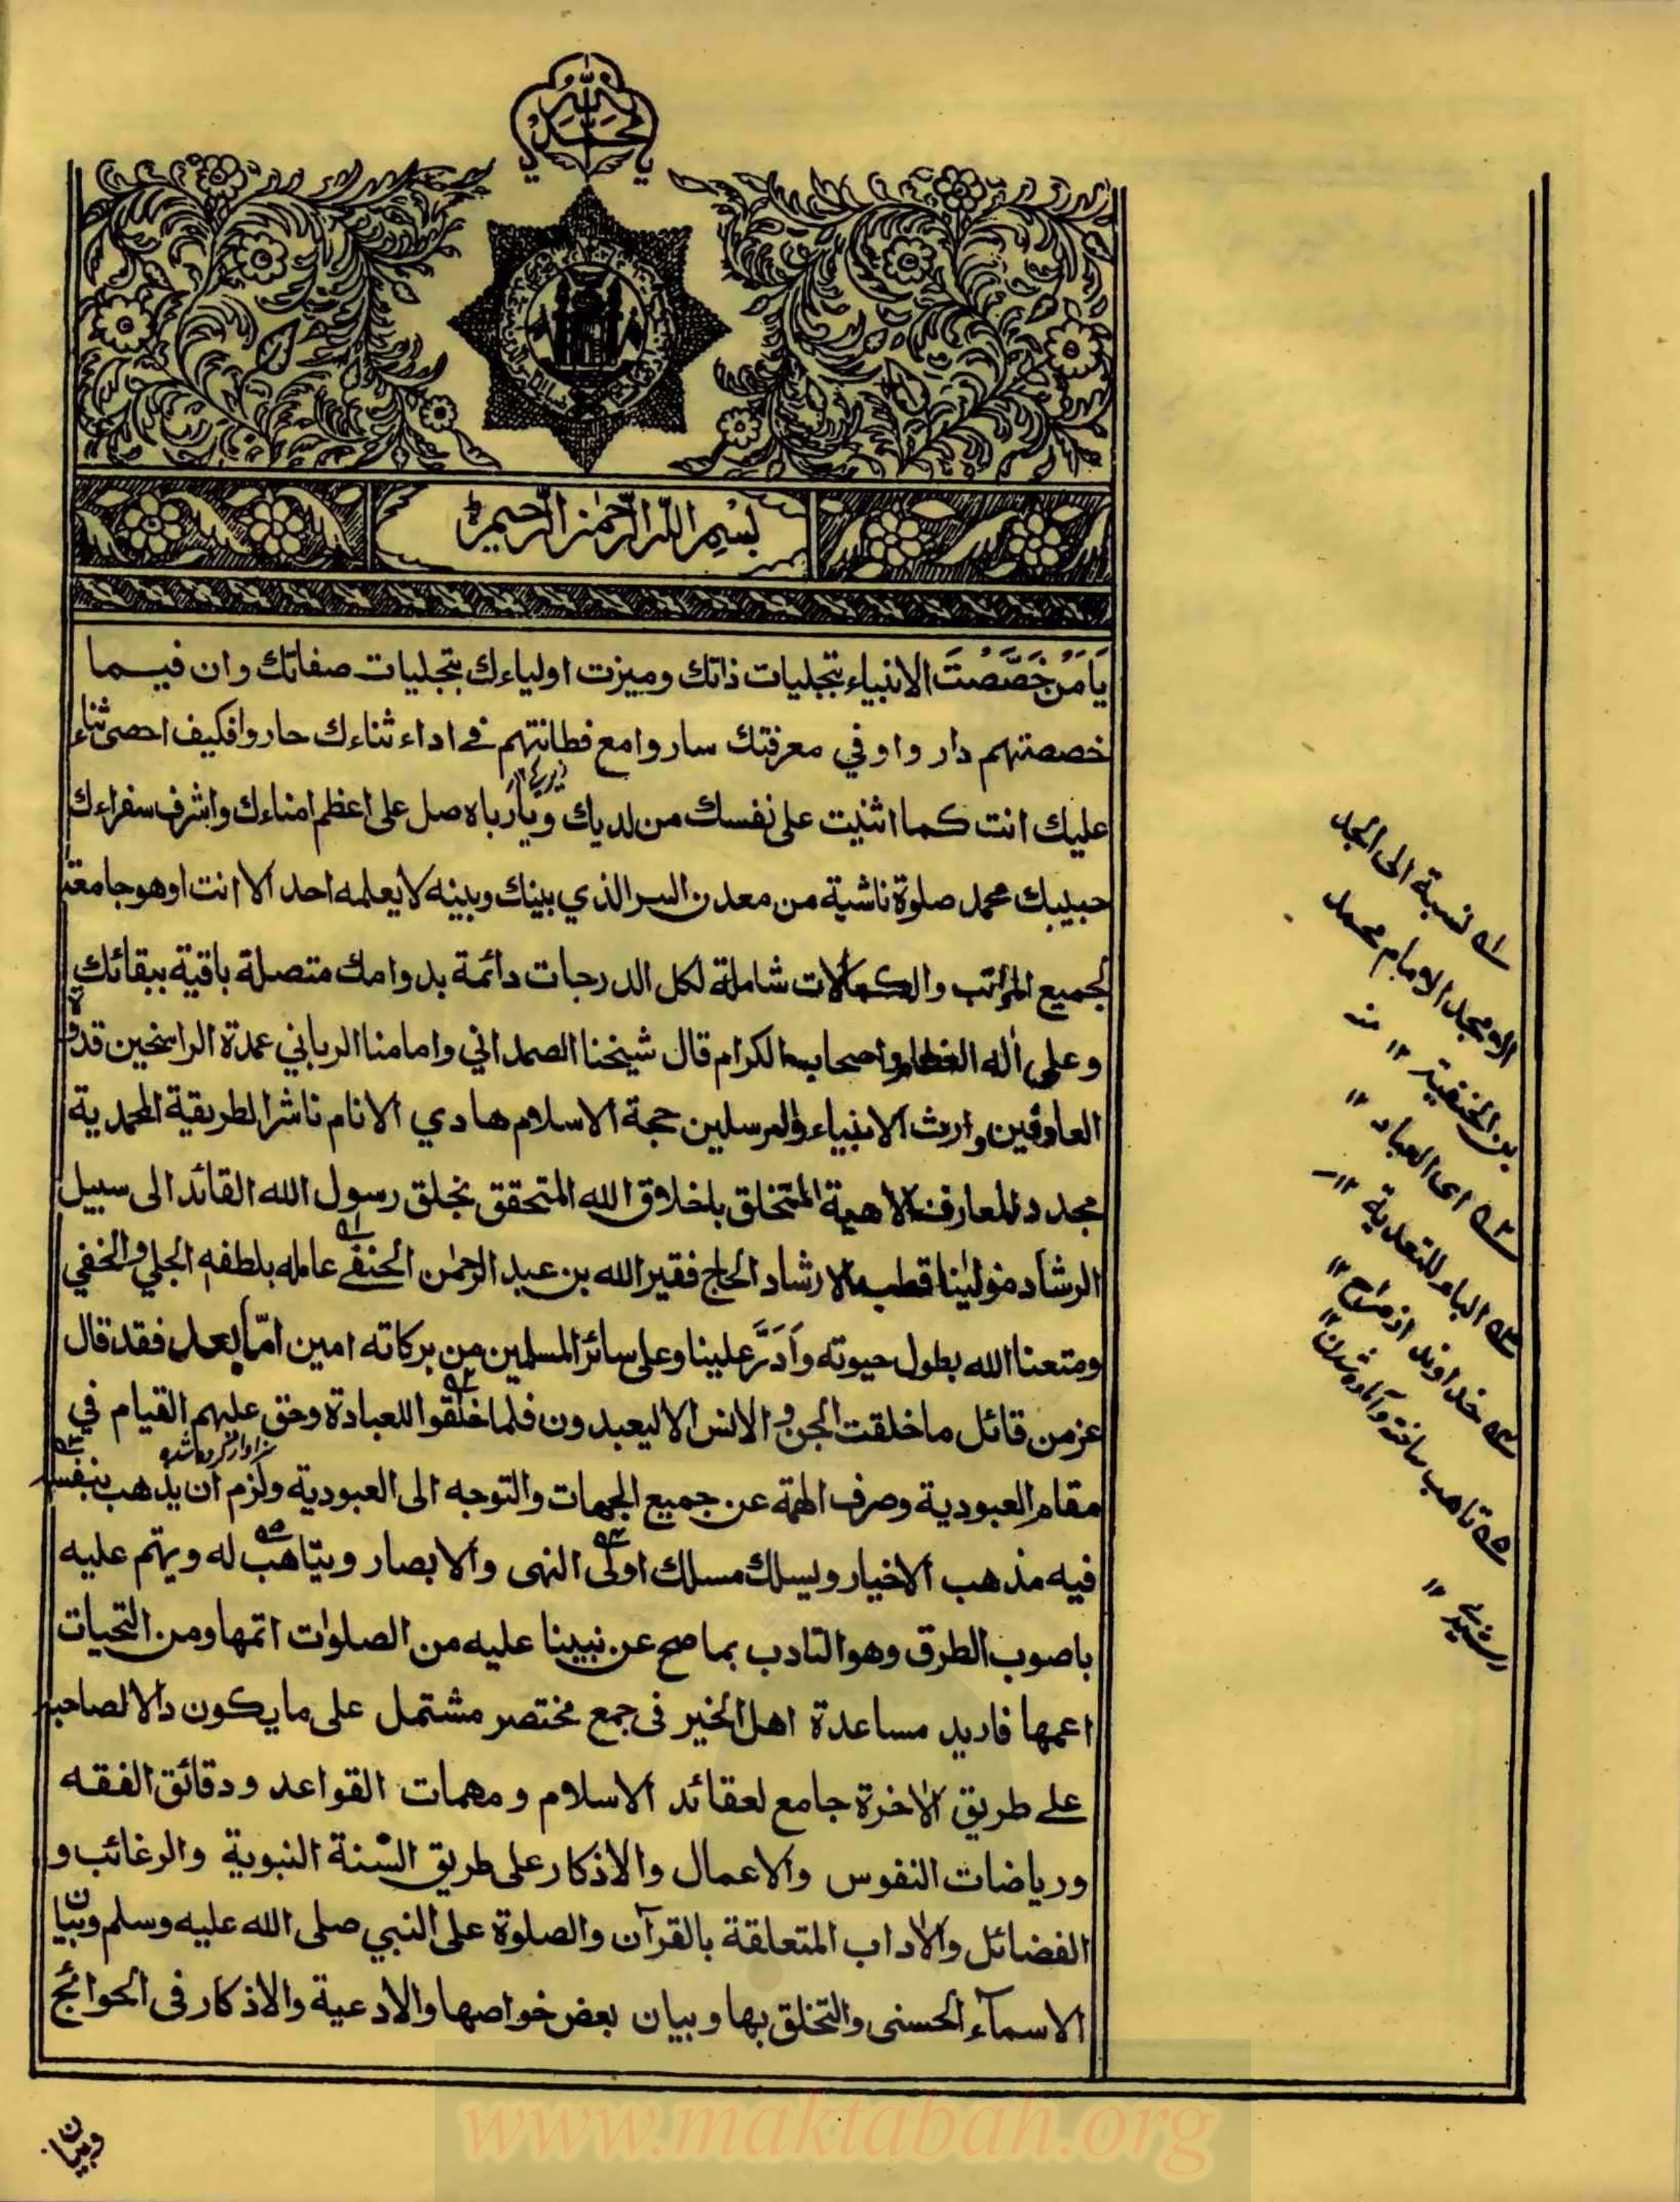 يا محمد
بسم الله الرحمن الرحيم
يَا مَنْ خَصَّصْتَ الانبياء بتجليات ذاتك وميزت اولياءك بتجليات صفاتك وان فيما
خصصتهم دار واوفي معرفتك ساروا مع فطانتهم في اداء ثناءك حاروا فكيف احصى ثناء
عليك انت كما اثنيت على نفسك من لديك ويارباه صل على اعظم امناءك واشرف سفراءك
حبيبك محمد صلوة ناشية من معدن السر الذي بينك وبينه لا يعلمه احد الا انت او هو جامعة
لجميع المراتب والكمالات شاملة لكل الدرجات دائمة بدوامك متصلة باقية ببقائك
وعلى اله العظام واصحابه الكرام قال شيخنا الصمداني وامامنا الرباني عمدة الراسخين قدوة
العارفين وارث الانبياء والمرسلين حجة الاسلام هادي الانام ناشر الطريقة المحمدية
مجدد المعارف الالهية المتخلق باخلاق الله المتحقق بخلق رسول الله القائد الى سبيل
الرشاد مولينا قطب الارشاد الحاج فقير الله بن عبد الرحمٰن الحنفے عامله بلطفه الجلي والخفي
ومتعنا الله بطول حيوته وَاَدَرَّ علينا وعلى سائر المسلمين من بركاته امين امّا بعد فقد قال
عز من قائل ما خلقت الجن والانس الا ليعبدون فلما خلقوا للعبادة وحق عليهم القيام في
مقام العبودية وصرف الهمة عن جميع الجهات والتوجه الى العبودية ولزم ان يذهب بنفسه
فيه مذهب الاخيار ويسلك مسلك اولى النهى والابصار ويتاهب له ويهتم عليه
باصوب الطرق وهو التادب بما صح عن نبينا عليه من الصلوات اتمها ومن التحيات
اعمها فاريد مساعدة اهل الخير فى جمع مختصر مشتمل على ما يكون دالا لصاحبه
على طريق الاخرة جامع لعقائد الاسلام ومهمات القواعد ودقائق الفقه
ورياضات النفوس والاعمال والاذكار على طريق السّنة النبوية والرغائب و
الفضائل والاداب المتعلقة بالقرآن والصلوة على النبي صلى الله عليه وسلم وبيان
الاسمآء الحسنى والتخلق بها وبيان بعض خواصها والادعية والاذكار فى الحوائج
وبيان
۱ نسبة الى الجد
الامجد الامام محمد
بن الحنفية ۱۲ منه
۲ اى العباد ۱۲
۳ الباء للتعدية ۱۲
۴ خداوند از صراح ۱۲
۵ تاهب ساخته وآماده شدن ۱۲
رشيدى ۱۲
www.maktabah.org